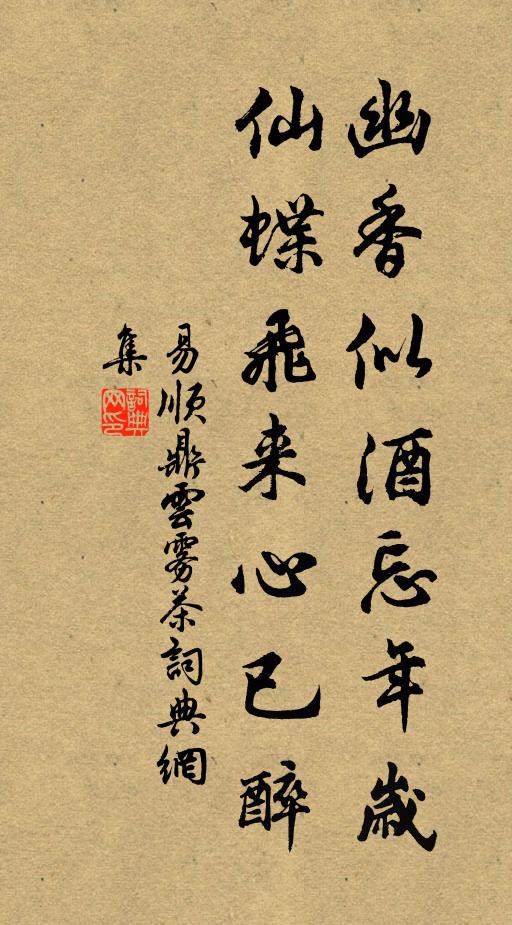 幽香似酒忘年歲
仙蝶飛来心已醉
易順鼎雲雾茶詞典網
集
詞典網印